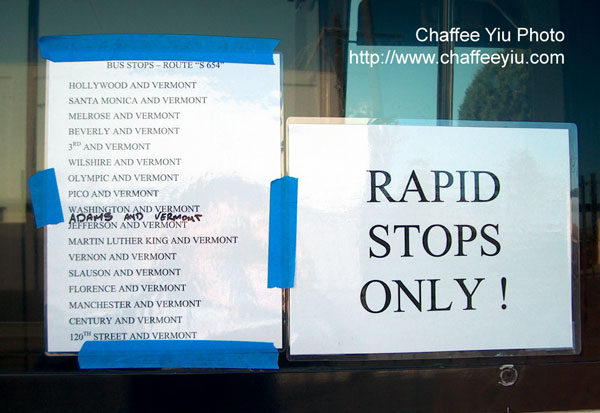 Chaffee Yiu Photo
http://www.chaffeeyiu.com
BUS STOPS – ROUTE "S 654"
HOLLYWOOD AND VERMONT
SANTA MONICA AND VERMONT
MELROSE AND VERMONT
BEVERLY AND VERMONT
3RD AND VERMONT
WILSHIRE AND VERMONT
OLYMPIC AND VERMONT
PICO AND VERMONT
WASHINGTON AND VERMONT
ADAMS AND VERMONT
JEFFERSON AND VERMONT
MARTIN LUTHER KING AND VERMONT
VERNON AND VERMONT
SLAUSON AND VERMONT
FLORENCE AND VERMONT
MANCHESTER AND VERMONT
CENTURY AND VERMONT
120TH STREET AND VERMONT
RAPID
STOPS
ONLY !